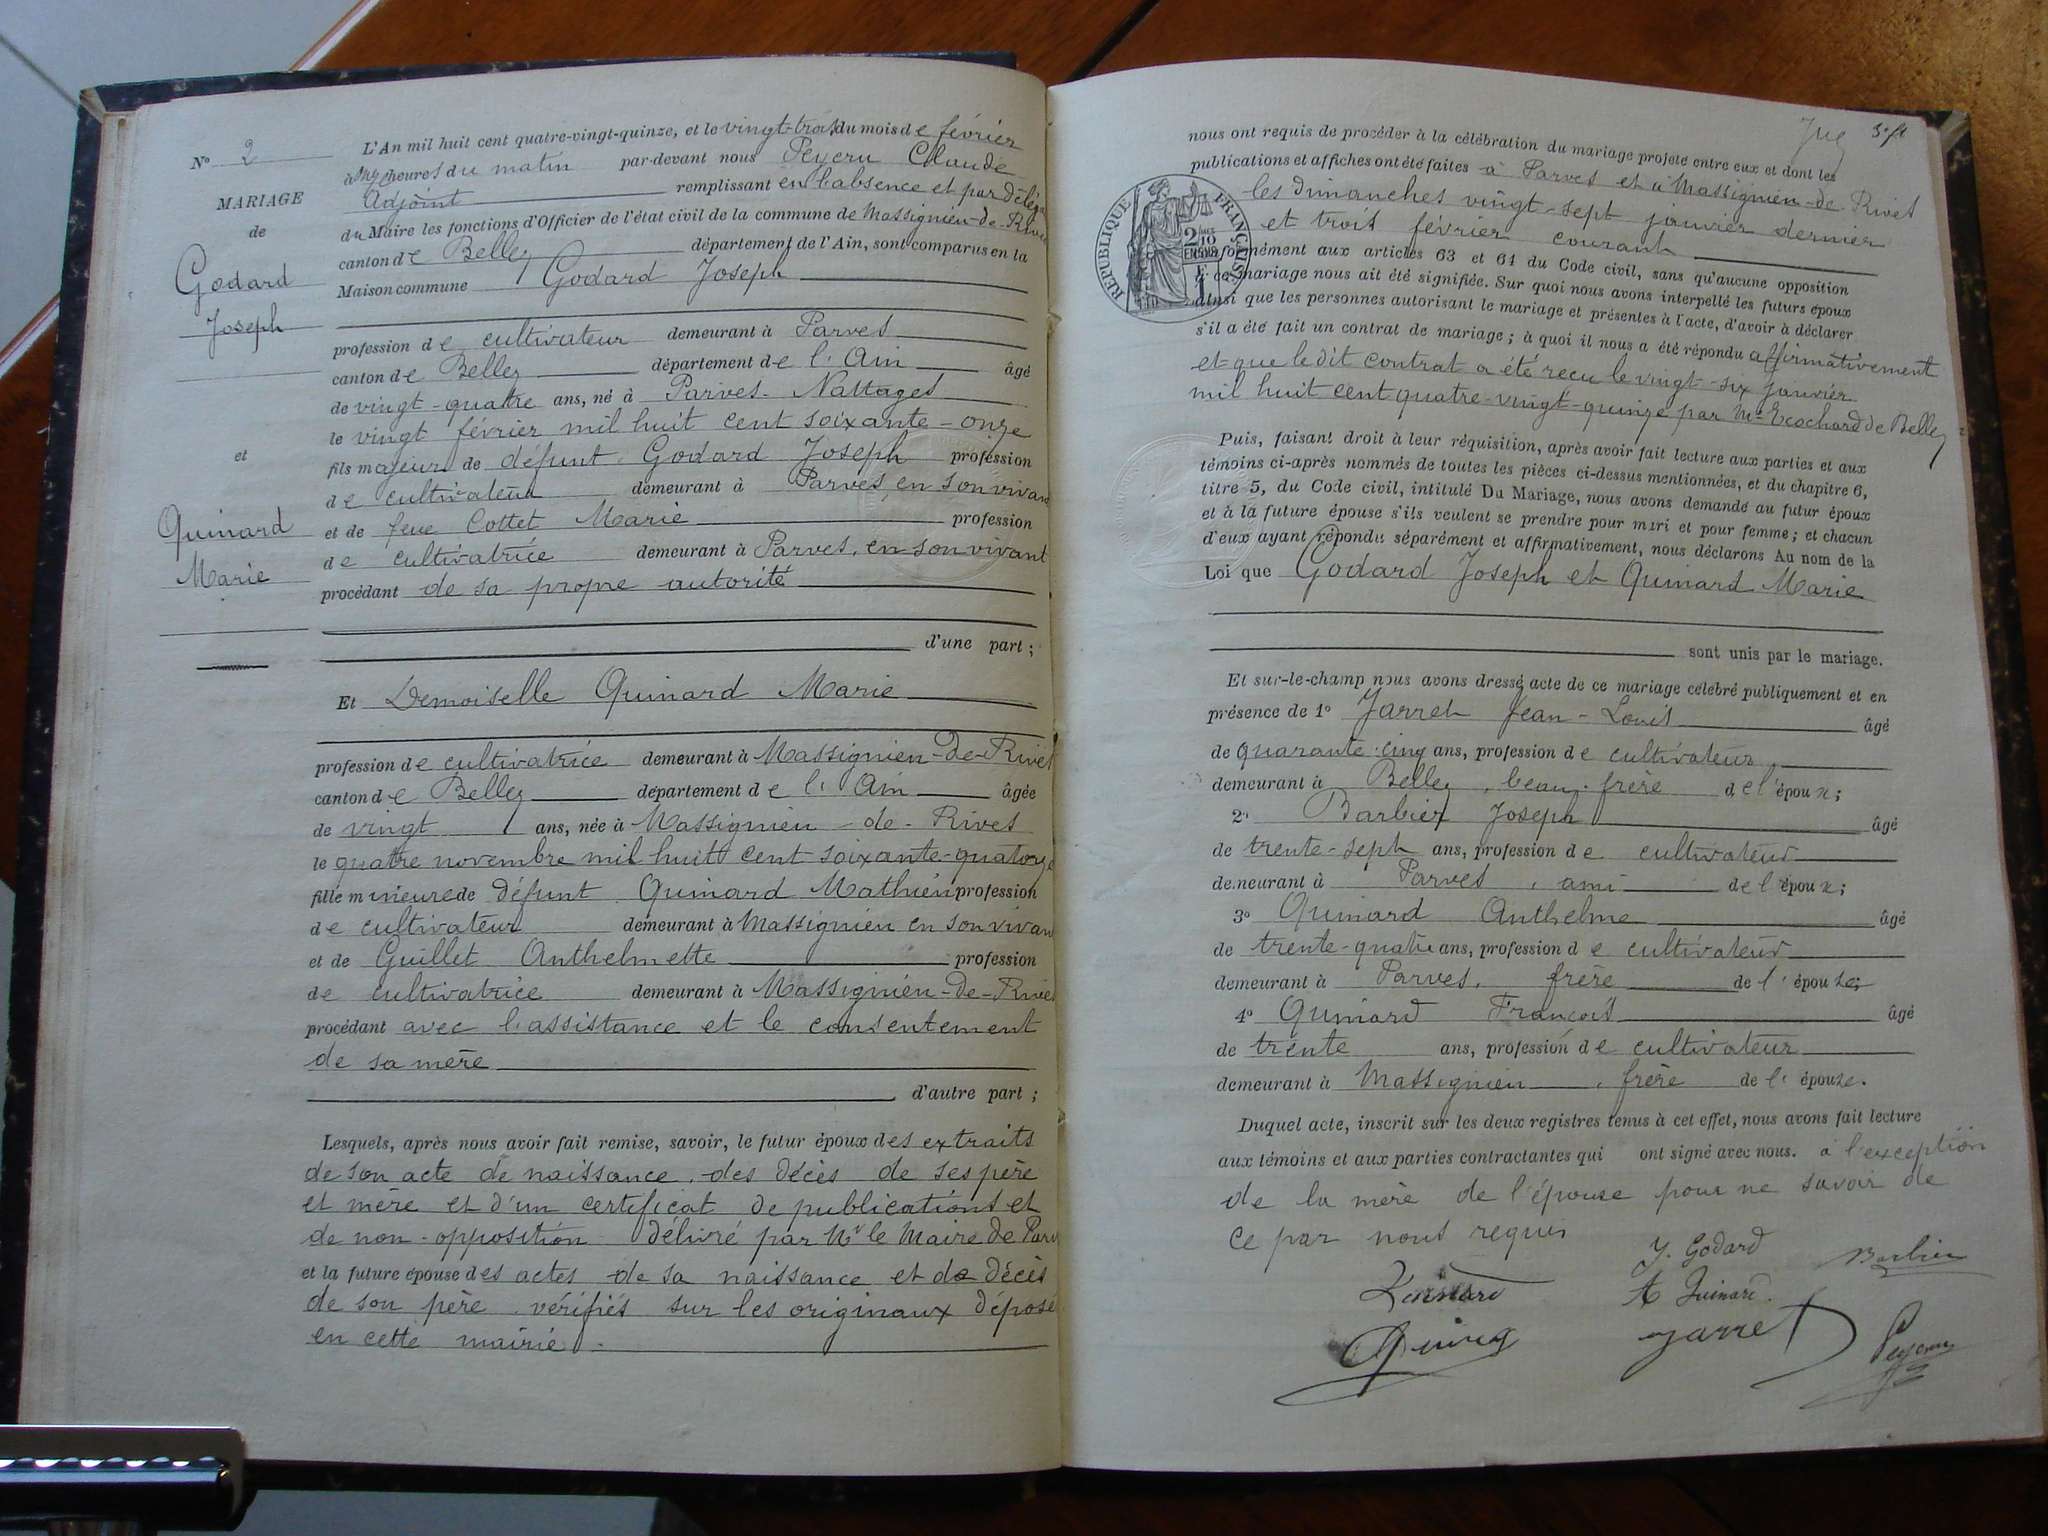 N° 2
MARIAGE
de
Godard
Joseph
et
Quinard
Marie
L'An mil huit cent quatre-vingt-quinze, et le vingt-trois du mois de février
à onze heures du matin par-devant nous Peycru Claude
Adjoint remplissant en l'absence et par délég
du Maire les fonctions d'Officier de l'état civil de la commune de Massignieu-de-Rives
canton de Belley département de l'Ain, sont comparus en la
Maison commune Godard Joseph
profession de cultivateur demeurant à Parves
canton de Belley département de l'Ain âgé
de vingt-quatre ans, né à Parves-Nattages
le vingt février mil huit cent soixante-onze
fils majeur de défunt Godard Joseph profession
de cultivateur demeurant à Parves, en son vivant
et de feue Cottet Marie profession
de cultivatrice demeurant à Parves, en son vivant
procédant de sa propre autorité
d'une part ;
Et Demoiselle Quinard Marie
profession de cultivatrice demeurant à Massignieu-de-Rives
canton de Belley département de l'Ain âgée
de vingt ans, née à Massignieu-de-Rives
le quatre novembre mil huit cent soixante-quatorze
fille mineure de défunt Quinard Mathieu profession
de cultivateur demeurant à Massignieu en son vivant
et de Guillet Anthelmette profession
de cultivatrice demeurant à Massignieu-de-Rives
procédant avec l'assistance et le consentement
de sa mère
d'autre part ;
Lesquels, après nous avoir fait remise, savoir, le futur époux des extraits
de son acte de naissance, des décès de ses père
et mère et d'un certificat de publications et
de non-opposition délivré par Mr le Maire de Parv
et la future épouse des actes de sa naissance et de décès
de son père vérifiés sur les originaux déposé
en cette mairie.
3e ft
nous ont requis de procéder à la célébration du mariage projeté entre eux et dont les
publications et affiches ont été faites à Parves et à Massignieu-de-Rives
les dimanches vingt-sept janvier dernier
et trois février courant
formément aux articles 63 et 64 du Code civil, sans qu'aucune opposition
à ce mariage nous ait été signifiée. Sur quoi nous avons interpellé les futurs époux
ainsi que les personnes autorisant le mariage et présentes à l'acte, d'avoir à déclarer
s'il a été fait un contrat de mariage ; à quoi il nous a été répondu affirmativement
et que le dit contrat a été reçu le vingt-six janvier
mil huit cent quatre-vingt-quinze par Me Ecochard de Belley
RÉPUBLIQUE FRANÇAISE
2 10
EN SUS
Puis, faisant droit à leur réquisition, après avoir fait lecture aux parties et aux
témoins ci-après nommés de toutes les pièces ci-dessus mentionnées, et du chapitre 6,
titre 5, du Code civil, intitulé Du Mariage, nous avons demandé au futur époux
et à la future épouse s'ils veulent se prendre pour mari et pour femme ; et chacun
d'eux ayant répondu séparément et affirmativement, nous déclarons Au nom de la
Loi que Godard Joseph et Quinard Marie
sont unis par le mariage.
Et sur-le-champ nous avons dressé acte de ce mariage célébré publiquement et en
présence de 1° Jarret Jean-Louis âgé
de quarante-cinq ans, profession de cultivateur
demeurant à Belley, beau-frère de l'époux ;
2° Barbier Joseph âgé
de trente-sept ans, profession de cultivateur
demeurant à Parves, ami de l'époux ;
3° Quinard Anthelme âgé
de trente-quatre ans, profession de cultivateur
demeurant à Parves, frère de l'épouse ;
4° Quinard François âgé
de trente ans, profession de cultivateur
demeurant à Massignieu, frère de l'épouse.
Duquel acte, inscrit sur les deux registres tenus à cet effet, nous avons fait lecture
aux témoins et aux parties contractantes qui ont signé avec nous. à l'exception
de la mère de l'épouse pour ne savoir de
ce par nous requis
J. Godard
Barbier
A Quinard
Jarret